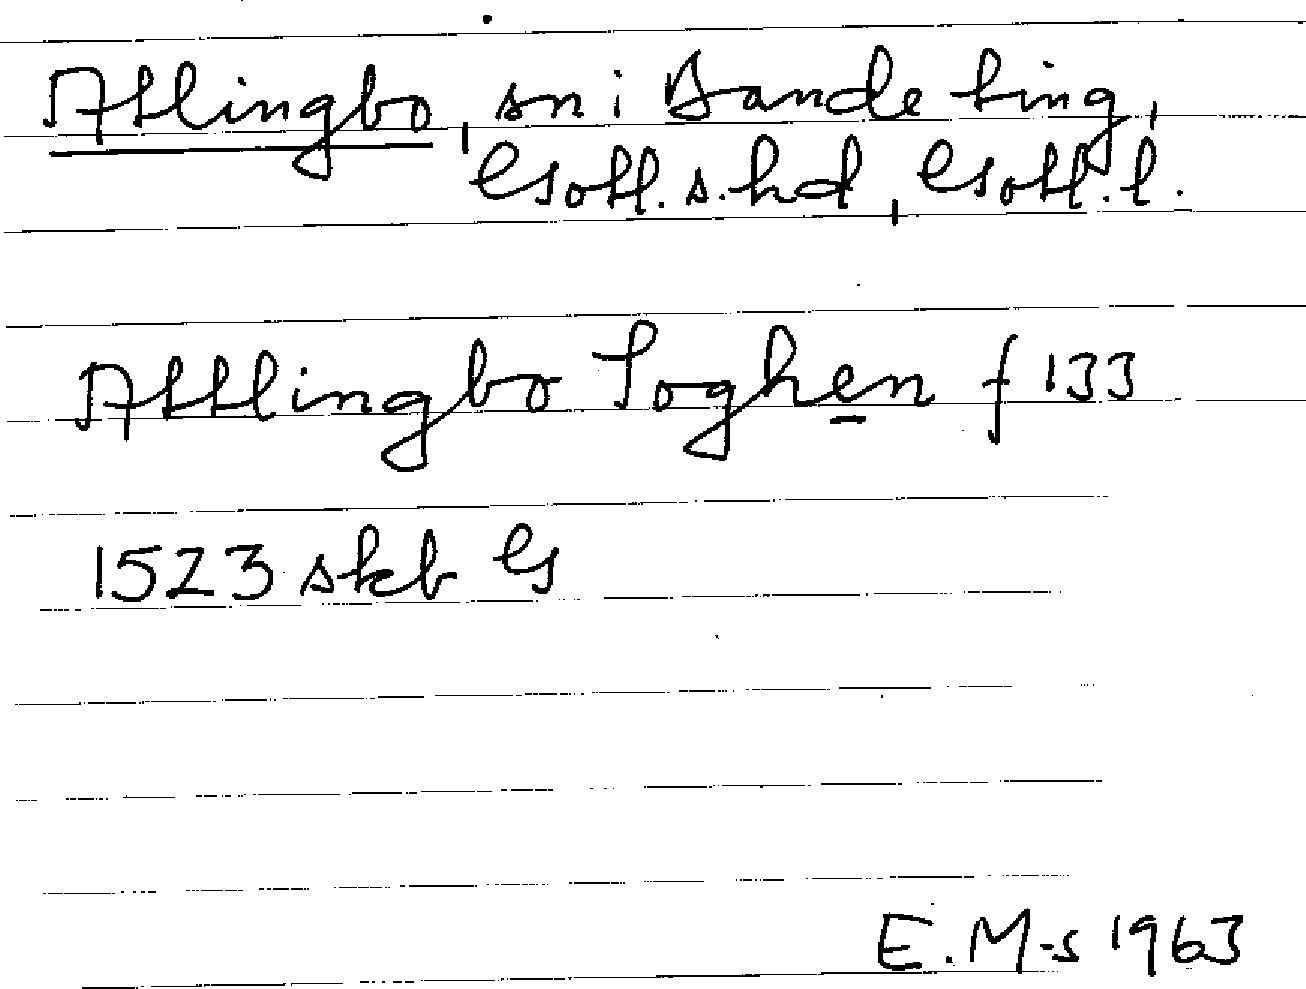 Atlingbo, sn i Bande ting,
Gotl. s. hd, Gotl. l.
Attlingbo Soghen f 133
1523 skb G
E. M-s 1963